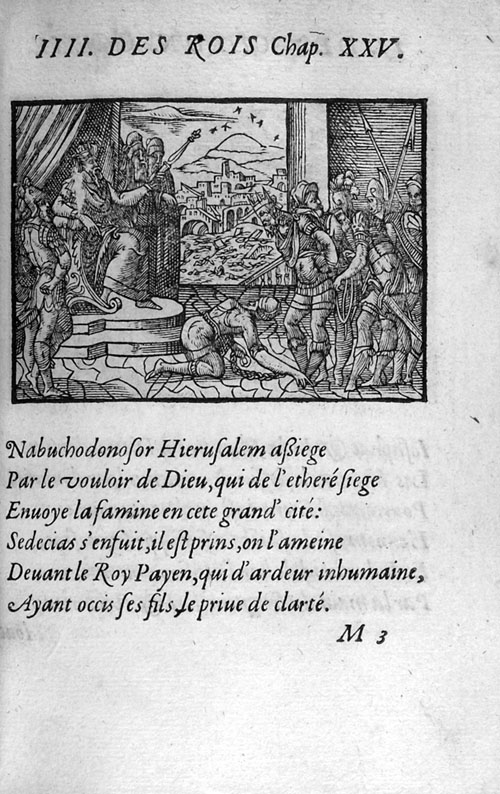 IIII. DES ROIS Chap. XXV.
Nabuchodonosor Hierusalem aßiege
Par le vouloir de Dieu, qui de l'etheré siege
Enuoye la famine en cete grand' cité:
Sedecias s'enfuit, il est prins, on l'ameine
Deuant le Roy Payen, qui d'ardeur inhumaine,
Ayant occis ses fils, le priue de clarté.
M 3